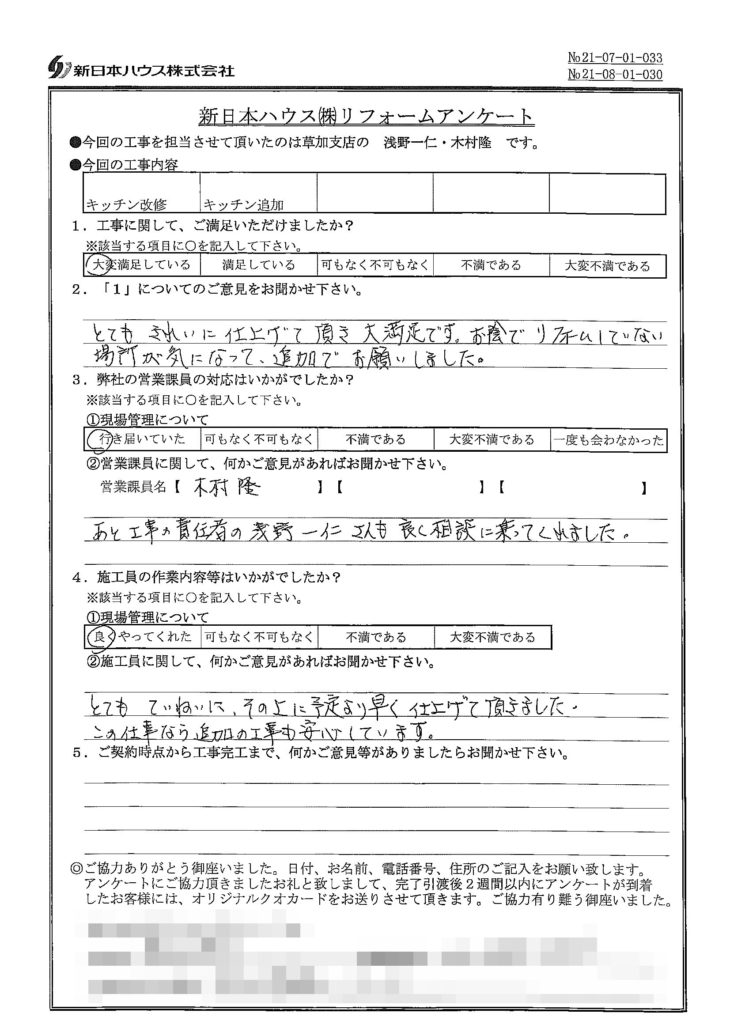 新日本ハウス株式会社
№21-07-01-033
№21-08-01-030
新日本ハウス㈱リフォームアンケート
●今回の工事を担当させて頂いたのは草加支店の 浅野一仁・木村隆 です。
●今回の工事内容
キッチン改修 キッチン追加
1．工事に関して、ご満足いただけましたか？
※該当する項目に○を記入して下さい。
大変満足している 満足している 可もなく不可もなく 不満である 大変不満である
2．「1」についてのご意見をお聞かせ下さい。
とても きれいに 仕上げて 頂き 大満足です。お陰で リフォームしていない
場所が気になって、追加で お願いしました。
3．弊社の営業課員の対応はいかがでしたか？
※該当する項目に○を記入して下さい。
①現場管理について
行き届いていた 可もなく不可もなく 不満である 大変不満である 一度も会わなかった
②営業課員に関して、何かご意見があればお聞かせ下さい。
営業課員名【 木村 隆 】【 】【 】
あと 工事の責任者の 浅野 一仁 さんも 良く相談に乗ってくれました。
4．施工員の作業内容等はいかがでしたか？
※該当する項目に○を記入して下さい。
①現場管理について
良くやってくれた 可もなく不可もなく 不満である 大変不満である
②施工員に関して、何かご意見があればお聞かせ下さい。
とても ていねいに、その上に予定より早く 仕上げて頂きました。
この仕事なら追加の工事も安心しています。
5．ご契約時点から工事完工まで、何かご意見等がありましたらお聞かせ下さい。
◎ご協力ありがとう御座いました。日付、お名前、電話番号、住所のご記入をお願い致します。
アンケートにご協力頂きましたお礼と致しまして、完了引渡後２週間以内にアンケートが到着
したお客様には、オリジナルクオカードをお送りさせて頂きます。ご協力有り難う御座いました。